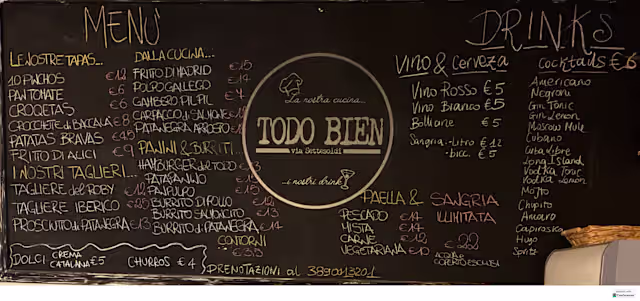 MENU'
LE NOSTRE TAPAS...
10 PINCHOS €12
PAN TOMATE €6
CROQETAS €6
CROCCHETTE di BACCALÀ €8
PATATAS BRAVAS €4,5
FRITTO DI ALICI €9
I NOSTRI TAGLIERI...
TAGLIERE del ROBY €12
TAGLIERE IBERICO €25
PROSCIUTTO di PATANEGRA €13
DOLCI CREMA CATALANA €5 CHURROS €4
DALLA CUCINA...:
FRITTO DI MADRID €15
POLPO GALLEGO €14
GAMBERO PIL PIL €
CARPACCIO di SALMONE
PATANEGRA ARROSTO
PANINI & BURRITI...
HAMBURGER del TODO €13
PATAPANINO
PANPULPO €15
BURRITO DI POLLO €12
BURRITO SAUDICITO €13
BURRITO di PATANEGRA €14
CONTORNI
€3,5
PRENOTAZIONI al 3890413201
La nostra cucina...
TODO BIEN
via Settesoldi
...i nostri drink
DRINKS
VINO & Cerveza
VINO ROSSO €5
VINO Bianco €5
Bollicine €5
Sangria -Litro €12
-bicc. €5
Cocktails €6
Americano
Negroni
Gin Tonic
Gin Lemon
Moscow Mule
Cubano
Cuba Libre
Long Island
Vodka Tonic
Vodka Lemon
Mojito
Chupito
Amaro
Capiroska
Hugo
Spritz
PAELLA & SANGRIA
ILLIMITATA
PESCADO €14
MISTA €14
CARNE €12
VEGETARIANA €10
€22
ACQUA e
COPERTO ESCLUSI